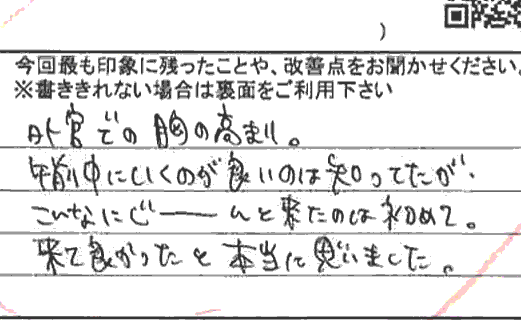 )
今回最も印象に残ったことや、改善点をお聞かせください。
※書ききれない場合は裏面をご利用下さい
外宮での胸の高まり。
午前中にいくのが良いのは知ってたが、
こんなにじーーんと来たのは初めて。
来て良かったと本当に思いました。